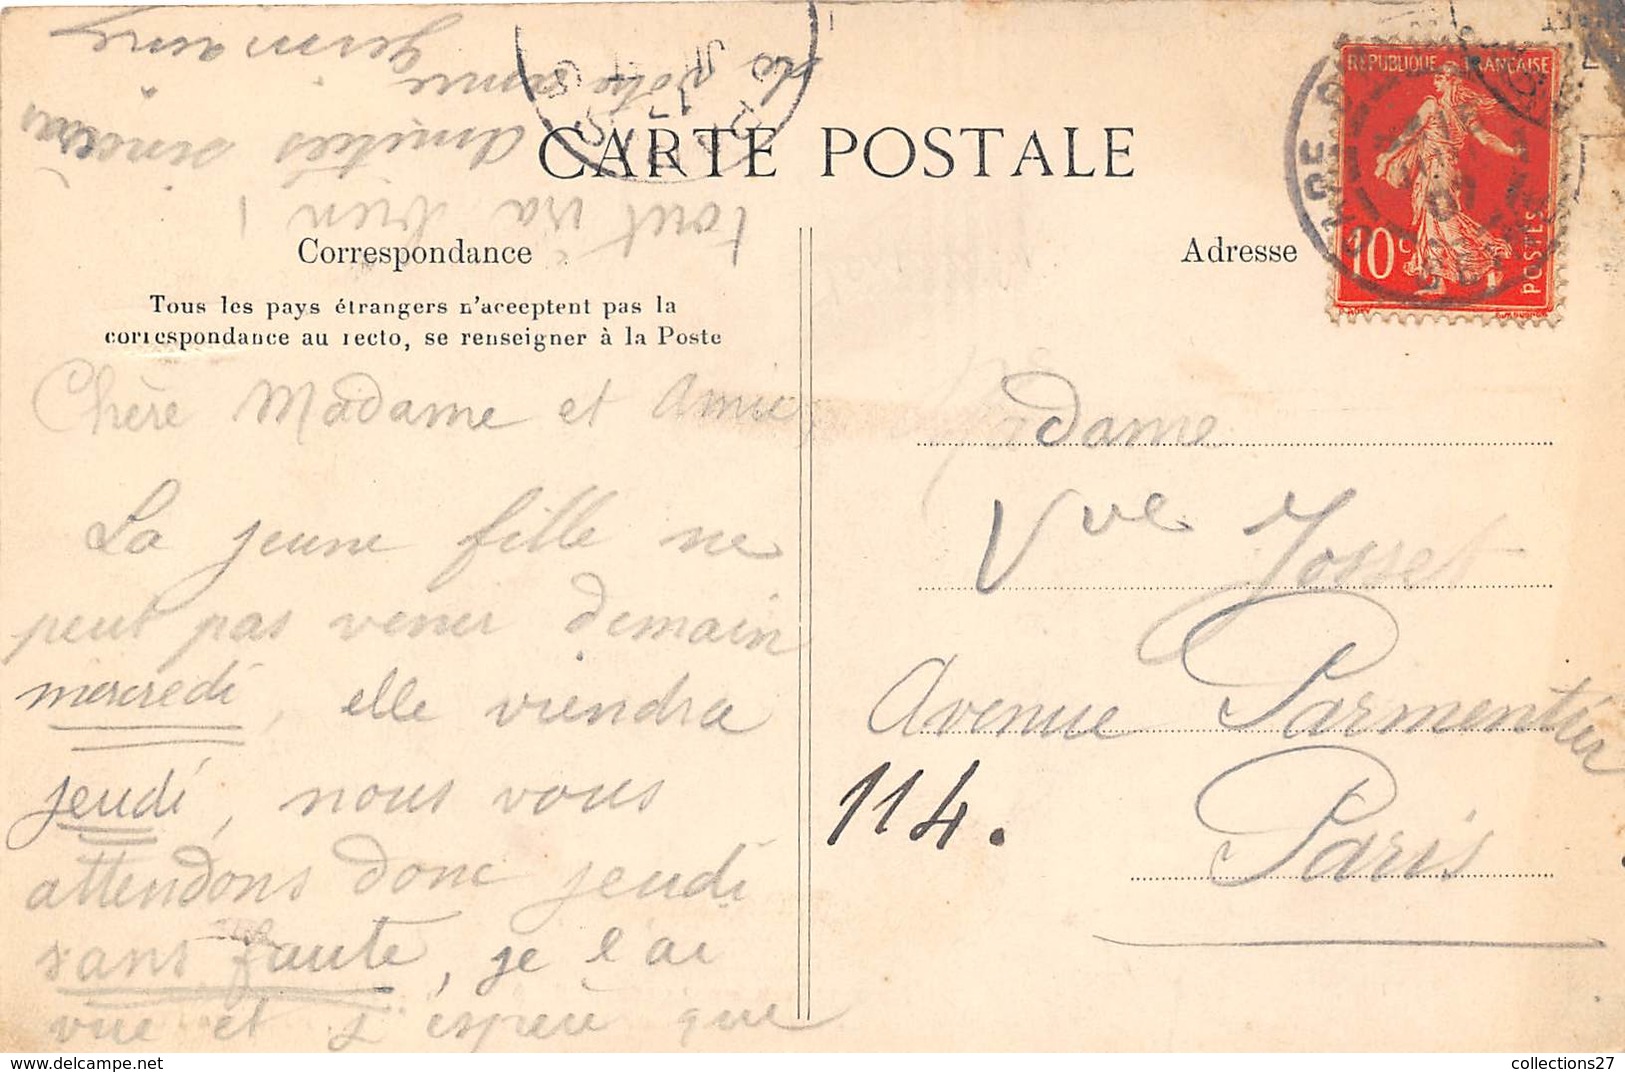 CARTE POSTALE
Correspondance
Tous les pays étrangers n'acceptent pas la
correspondance au recto, se renseigner à la Poste
Chère Madame et Amie
La jeune fille ne
peut pas venir demain
mercredi, elle viendra
jeudi, nous vous
attendons donc jeudi
sans faute, je l'ai
vue et j'espère que
tout ira bien !
Amitiés sincères
de votre amie
Germaine
Adresse
Madame
Vve Josset
Avenue Parmentier
114.
Paris
REPUBLIQUE FRANÇAISE
10c
POSTES
PARIS
collections27